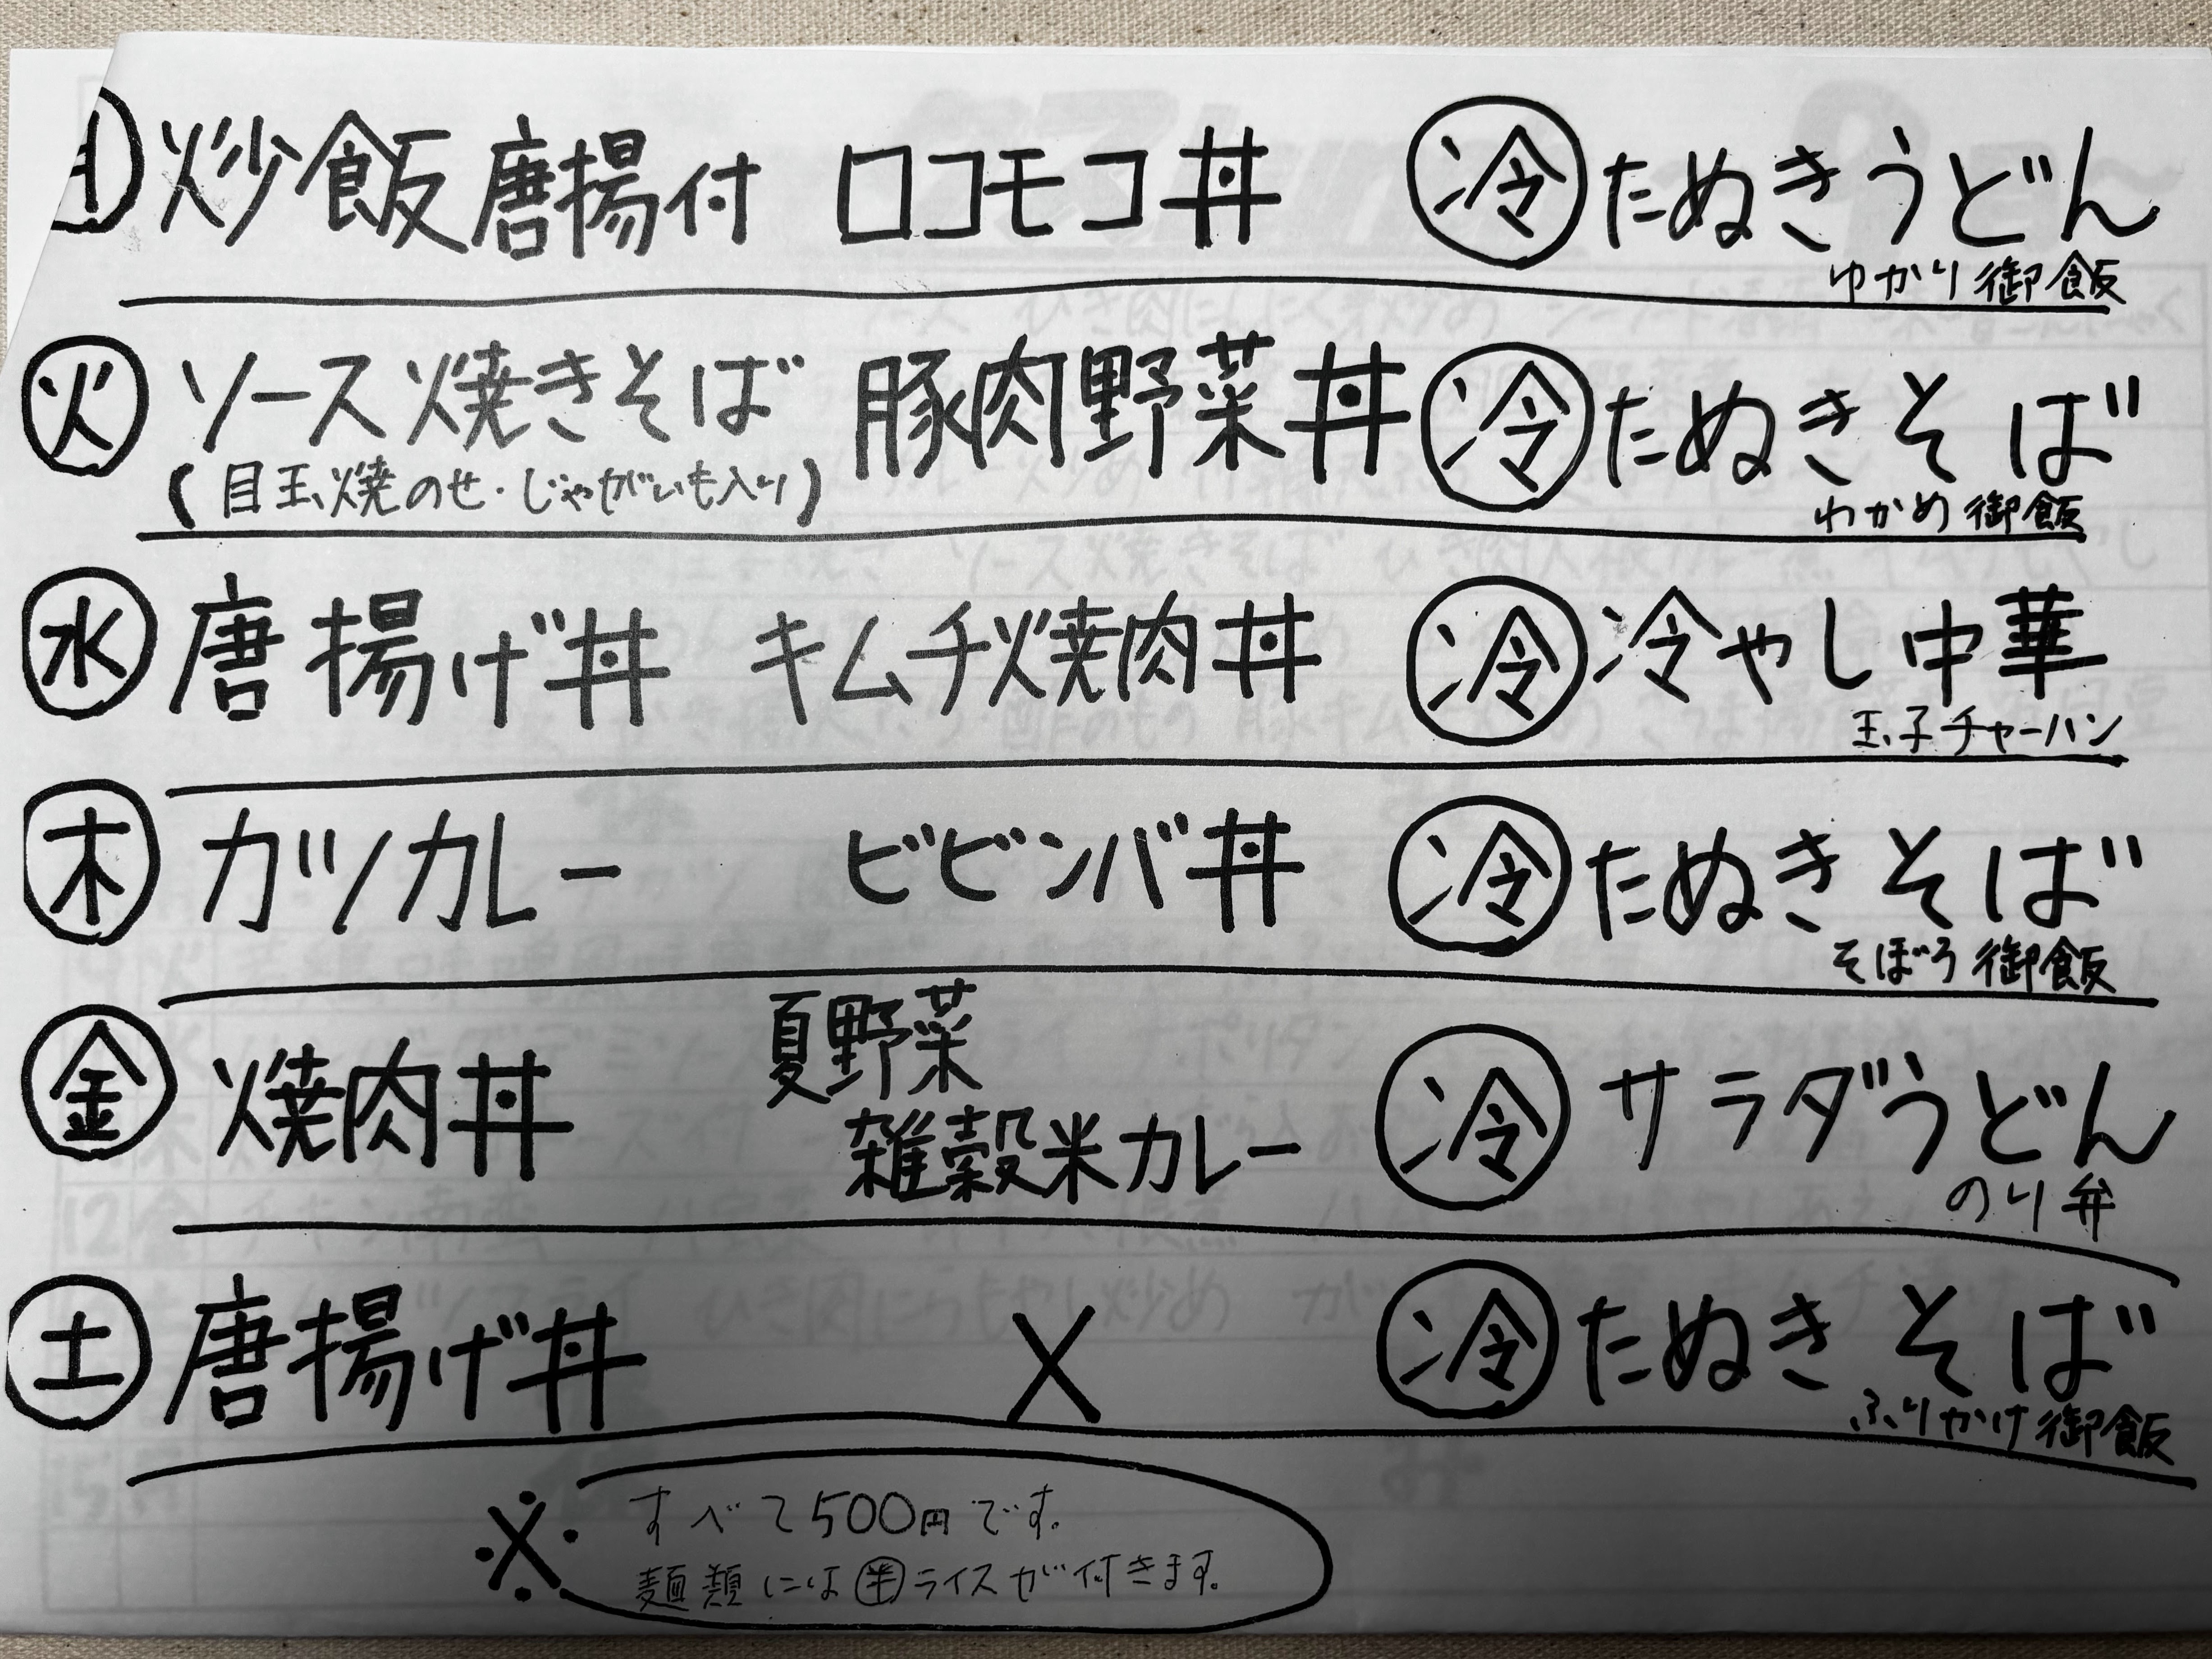 ㊊炒飯唐揚付 ロコモコ丼 ㊤冷たぬきうどん
ゆかり御飯
㊋ソース焼きそば 豚肉野菜丼 冷たぬきそば
(目玉焼のせ・じゃがいも入り)
わかめ御飯
㊌唐揚げ丼 キムチ焼肉丼 冷冷やし中華
玉子チャーハン
㊍カツカレー ビビンバ丼 冷たぬきそば
そぼろ御飯
㊎焼肉丼 夏野菜
雑穀米カレー 冷サラダうどん
のり弁
㊏唐揚げ丼 × 冷たぬきそば
ふりかけ御飯
※ すべて500円です。
麺類には半ライスが付きます。